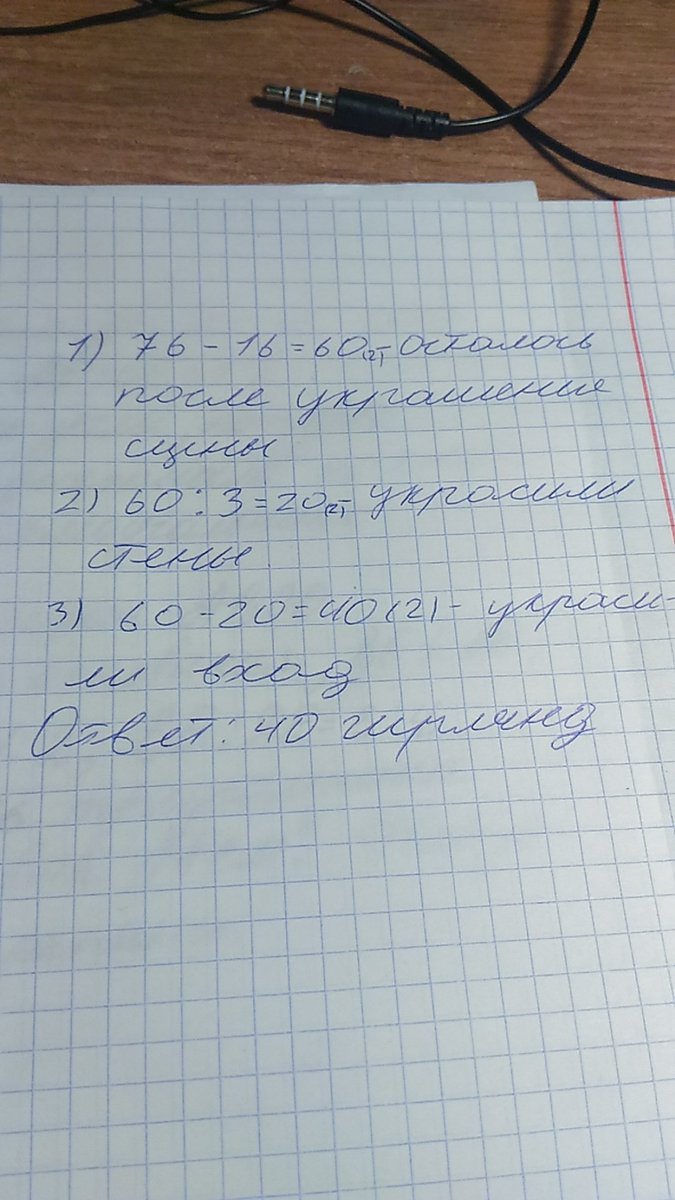 1) 76 - 16 = 60(г)- осталось
после украшение
сцены
2) 60 : 3 = 20(г)- украсили
стены
3) 60 - 20 = 40 (г) - украси-
ли вход
Ответ: 40 гирлянд